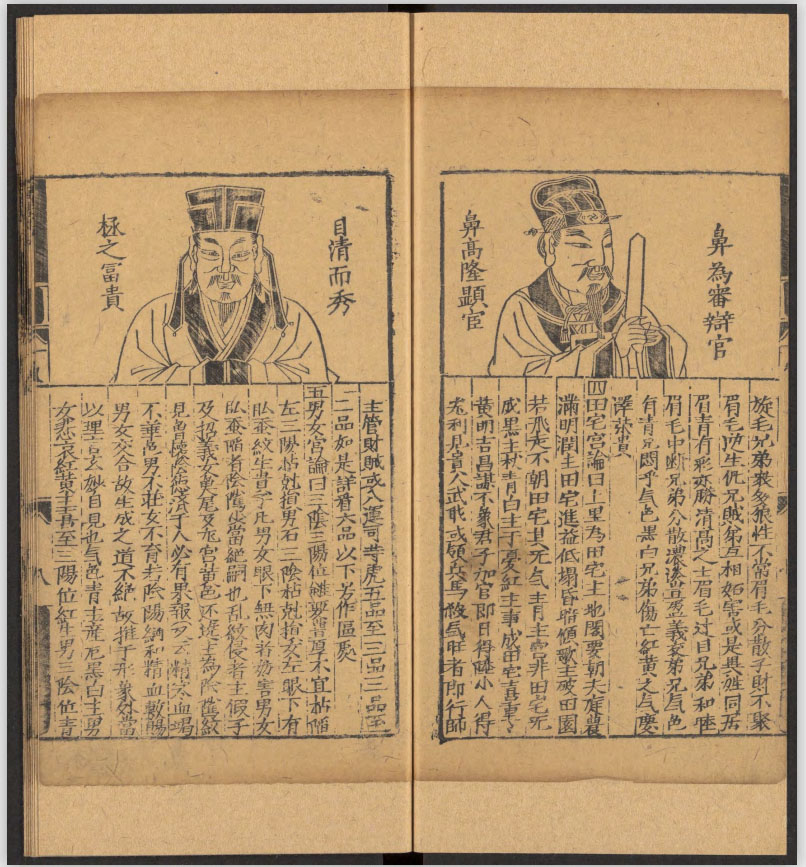 鼻為審辯官
鼻高隆顯宦
旋毛兄弟衆多狼性不常眉毛分散子財不聚
眉毛生仇兄賊弟互相妬害或是異姓同居
眉青有彩亦勝清高之士眉毛过目兄弟和睦
眉毛中断兄弟分散濃淡豊盈義交弟兄气色
有青兄乎气色黑白兄弟傷亡紅黃之气慶
貴
四田宅宮論曰上里為田宅主地閣要朝天庭豊
滿明潤主田宅進益低塌昏暗傾欹主破田園
若飛走不朝田宅具无气青主官非田宅无
成黑主杖責白主丁憂紅主事成田宅喜重〻
黄明吉昌謀不君子加官即日得陞小人得
利見貴人武职或領兵馬殺气旺者即行師
目清而秀
極之冨貴
主管財賊或入運司等五品至三品二品至
一品如是詳看六品以下另作區處
五男女宮論曰三陰三陽位雖要豊厚不宜枯陥
左三陽枯尅損男右三陰枯尅損女左眼下有
臥蚕紋生貴子凢男女眼下無肉者妨害男女
臥蚕陥者陰隲少當絕嗣也乱紋侵者主假子
及招義女魚尾及龙宮黄色环遶主為陰隲紋
見曾懷陰德濟于人必有果報又云精血竭
不華色男不莊女不育若陰陽調和精血敷暢
男女交合故生成之道不絕故推于形象外當
以理言玄妙自見也气色青主産厄黑白主男
女悲哀紅黄主喜至三陽位紅生男三陰位青